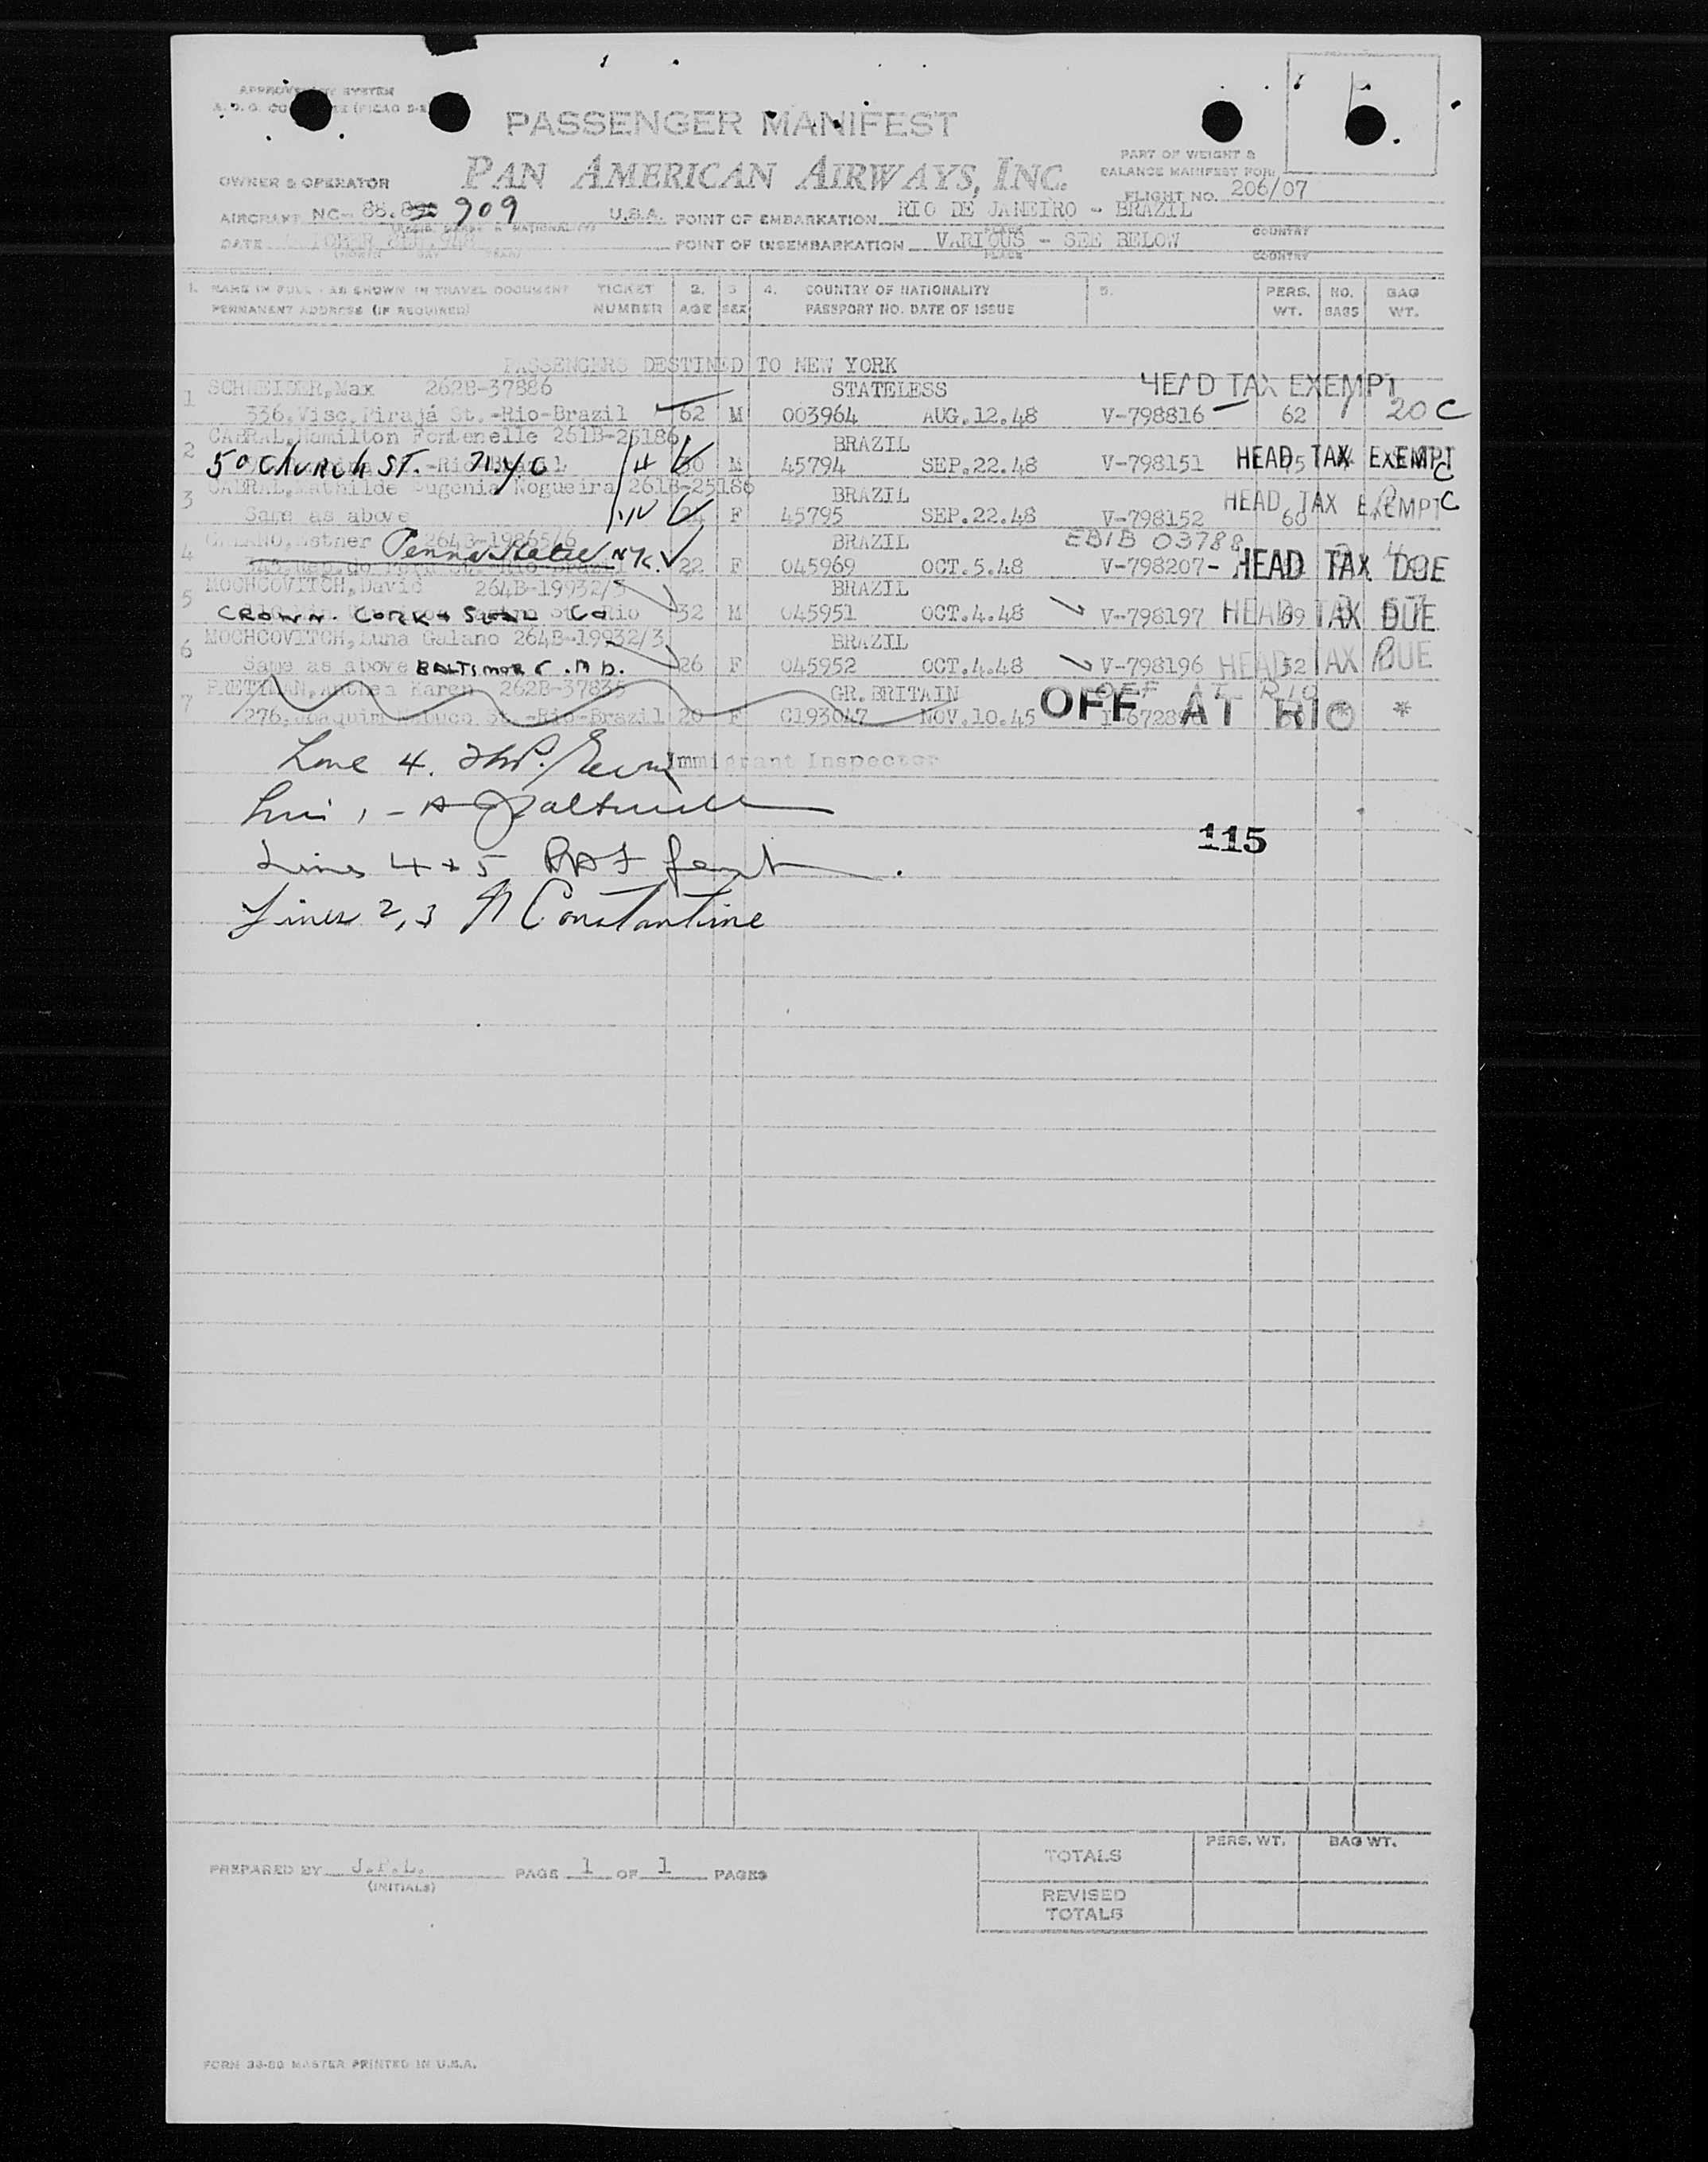 PASSENGER MANIFEST
PAN AMERICAN AIRWAYS, INC.
PART OF WEIGHT &
BALANCE MANIFEST FOR:
OWNER & OPERATOR
FLIGHT NO. 206/07
AIRCRAFT NC- 88.8 909 U.S.A. POINT OF EMBARKATION RIO DE JANEIRO - BRAZIL
PLACE COUNTRY
DATE POINT OF DISEMBARKATION VARIOUS - SEE BELOW
(MONTH DAY YEAR) PLACE COUNTRY
1. NAME IN FULL - AS SHOWN IN TRAVEL DOCUMENT TICKET 2. 3 4. COUNTRY OF NATIONALITY 5. PERS. NO. BAG
PERMANENT ADDRESS (IF REQUIRED) NUMBER AGE SEX PASSPORT NO. DATE OF ISSUE WT. BAGS WT.
PASSENGERS DESTINED TO NEW YORK
1 SCHNEIDER,Max 262B-37886 STATELESS HEAD TAX EXEMPT
336,Visc.Pirajá St.-Rio-Brazil 62 M 003964 AUG.12.48 V-798816 62 1 20 C
2 CABRAL,Hamilton Fontenelle 261B-25186 BRAZIL
50 CHURCH ST. N.Y.C M 45794 SEP.22.48 V-798151 HEAD TAX EXEMPT C
3 CABRAL,Mathilde Eugenia Nogueira 261B-25186 BRAZIL HEAD TAX EXEMPT C
Same as above F 45795 SEP.22.48 V-798152 60
4 GALANO,Esther 264B-19865/6 BRAZIL EBIB 03788
Penna Hotel NYC 22 F 045969 OCT.5.48 V-798207- HEAD TAX DUE
5 MOCHCOVITCH,David 264B-19932/3 BRAZIL
CROWN. CORK & SEAL Co 32 M 045951 OCT.4.48 V-798197 HEAD TAX DUE
6 MOCHCOVITCH,Luna Galano 264B-19932/3 BRAZIL
Same as above BALTIMORE. M D. 26 F 045952 OCT.4.48 V-798196 HEAD TAX DUE 52
7 Karen 262B-37835 GR.BRITAIN OFF AT RIO
276,Joaquim Nabuco St.-Rio-Brazil 20 F C193047 NOV.10.45 OFF AT RIO * *
Line 4.
Immigrant Inspector
Line 1 -
115
Lines 4 + 5
Lines 2, 3 N Constantine
PREPARED BY J.F.L. PAGE 1 OF 1 PAGES
(INITIALS)
PERS. WT. BAG WT.
TOTALS
REVISED
TOTALS
MASTER PRINTED IN U.S.A.